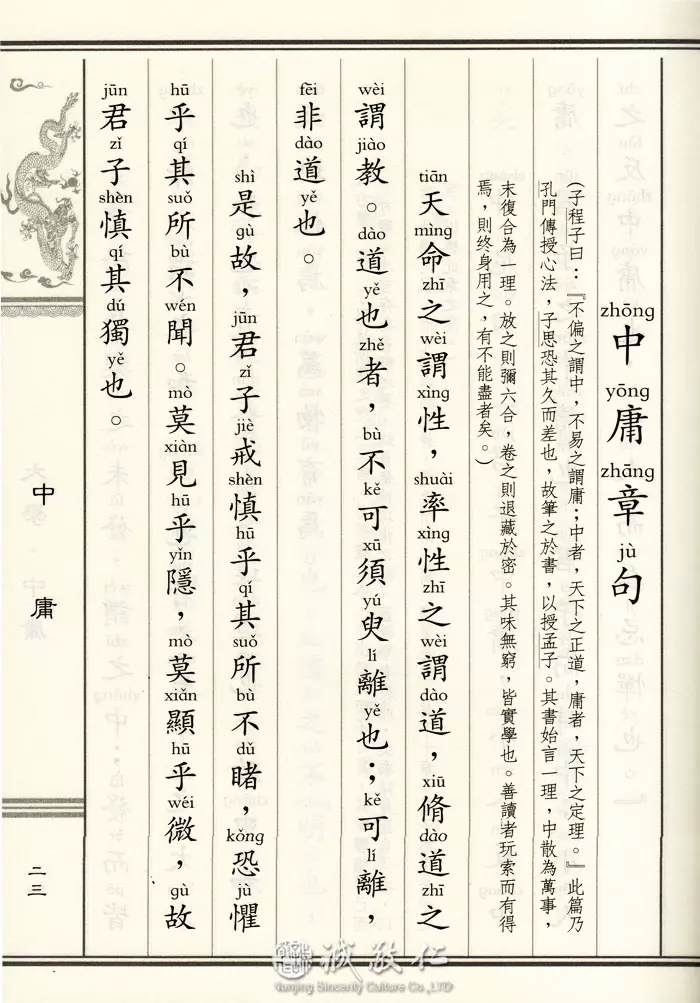 zhōng 中 yōng 庸 zhāng 章 jù 句
（子程子曰：『不偏之謂中，不易之謂庸；中者，天下之正道，庸者，天下之定理。』此篇乃
孔門傳授心法，子思恐其久而差也，故筆之於書，以授孟子。其書始言一理，中散為萬事，
末復合為一理。放之則彌六合，卷之則退藏於密。其味無窮，皆實學也。善讀者玩索而有得
焉，則終身用之，有不能盡者矣。）
tiān 天 mìng 命 zhī 之 wèi 謂 xìng 性， shuài 率 xìng 性 zhī 之 wèi 謂 dào 道， xiū 脩 dào 道 zhī 之
wèi 謂 jiào 教。 dào 道 yě 也 zhě 者， bù 不 kě 可 xū 須 yú 臾 lí 離 yě 也； kě 可 lí 離，
fēi 非 dào 道 yě 也。
shì 是 gù 故， jūn 君 zǐ 子 jiè 戒 shèn 慎 hū 乎 qí 其 suǒ 所 bù 不 dǔ 睹， kǒng 恐 jù 懼
hū 乎 qí 其 suǒ 所 bù 不 wén 聞。 mò 莫 xiàn 見 hū 乎 yǐn 隱， mò 莫 xiǎn 顯 hū 乎 wéi 微， gù 故
jūn 君 zǐ 子 shèn 慎 qí 其 dú 獨 yě 也。
中庸
二三
誠敬仁
Nanjing Sincerity Culture Co.,LTD